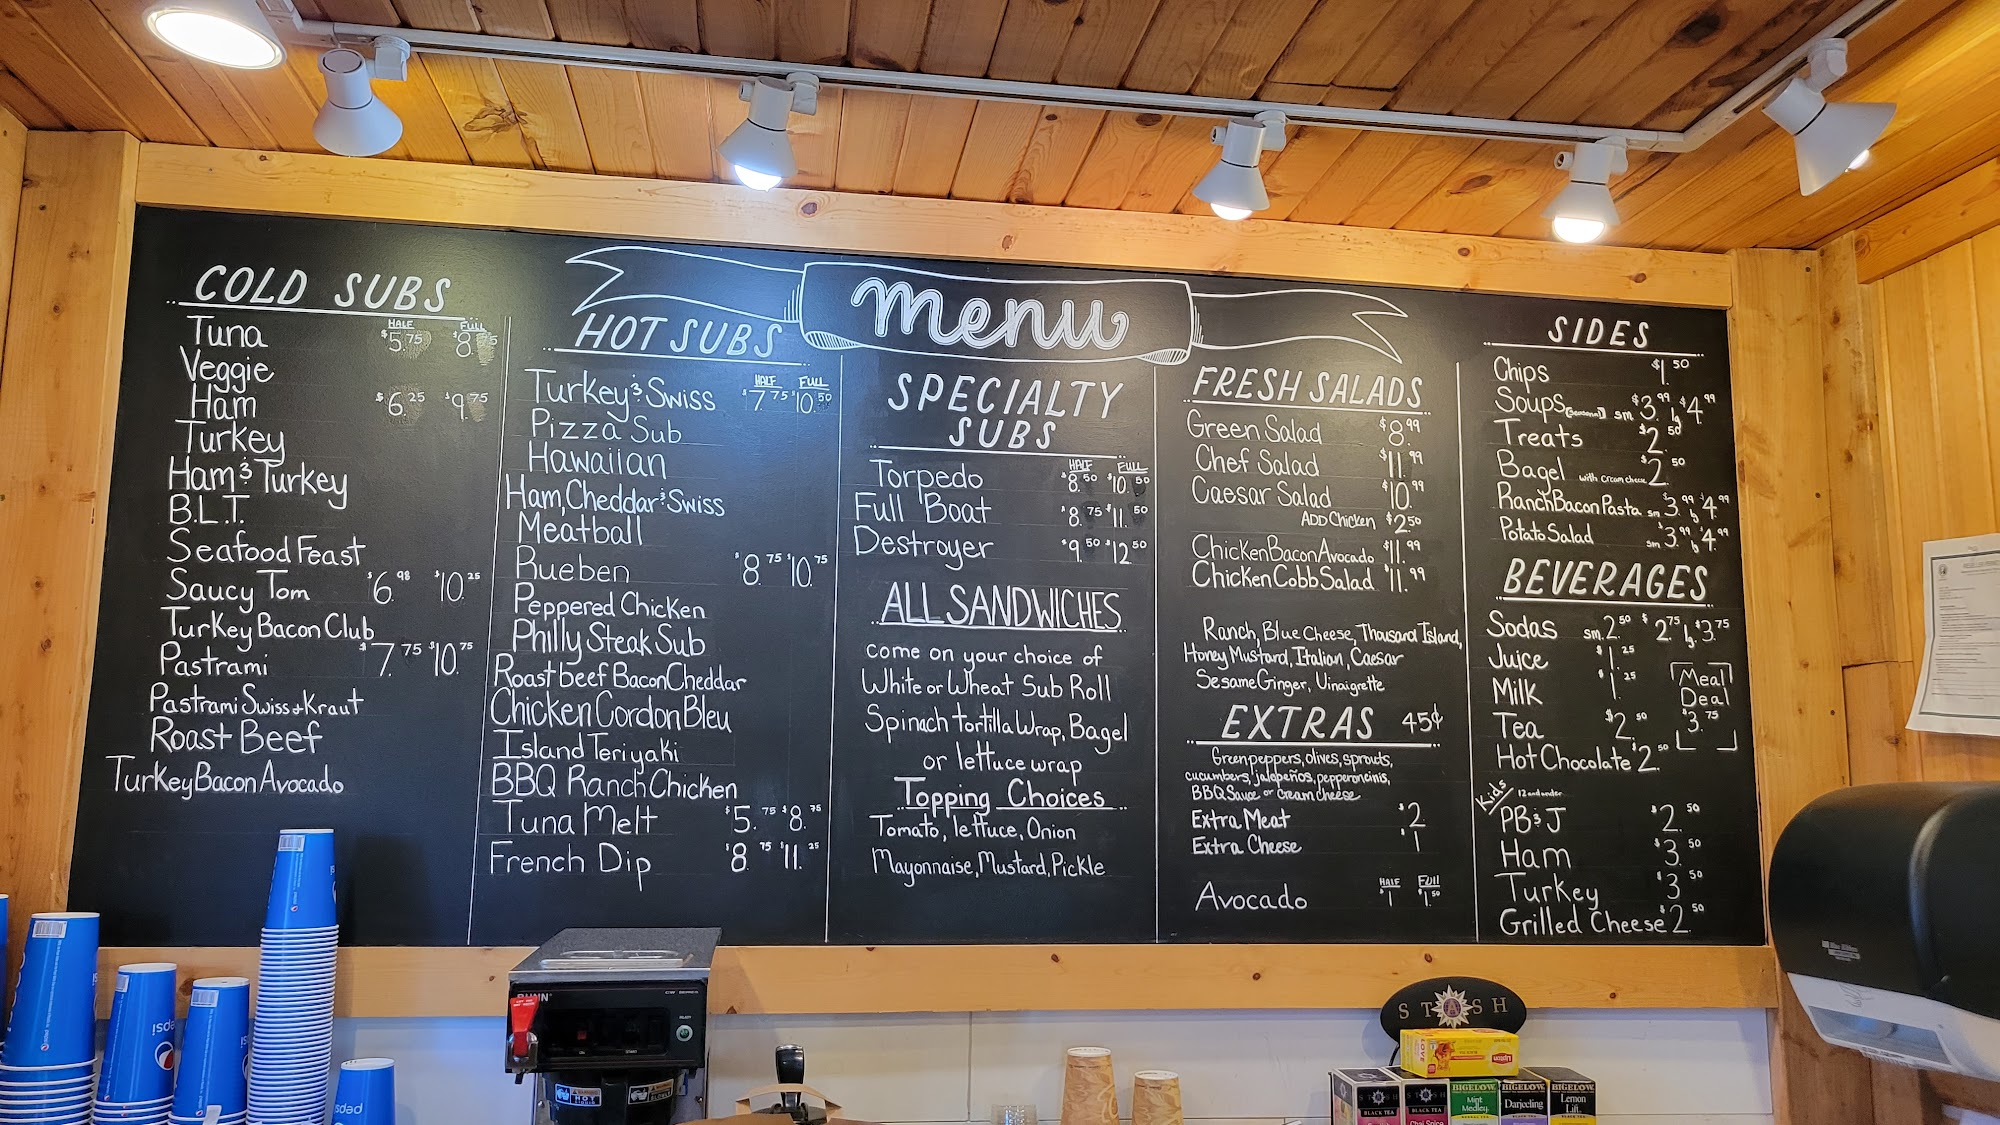 menu
COLD SUBS
HALF FULL
Tuna $5.75 $8.75
Veggie
Ham $6.25 $9.75
Turkey
Ham & Turkey
B.L.T.
Seafood Feast
Saucy Tom $6.98 $10.25
Turkey Bacon Club
Pastrami $7.75 $10.75
Pastrami Swiss + Kraut
Roast Beef
Turkey Bacon Avocado
HOT SUBS
HALF FULL
Turkey & Swiss $7.75 $10.50
Pizza Sub
Hawaiian
Ham, Cheddar & Swiss
Meatball
Rueben $8.75 $10.75
Peppered Chicken
Philly Steak Sub
Roast beef Bacon Cheddar
Chicken Cordon Bleu
Island Teriyaki
BBQ Ranch Chicken
Tuna Melt $5.75 $8.75
French Dip $8.75 $11.25
SPECIALTY
SUBS
HALF FULL
Torpedo $8.50 $10.50
Full Boat $8.75 $11.50
Destroyer $9.50 $12.50
ALL SANDWICHES
come on your choice of
White or Wheat Sub Roll
Spinach tortilla Wrap, Bagel
or lettuce wrap
Topping Choices
Tomato, lettuce, Onion
Mayonnaise, Mustard, Pickle
FRESH SALADS
Green Salad $8.99
Chef Salad $11.99
Caesar Salad $10.99
ADD Chicken $2.50
Chicken Bacon Avocado $11.99
Chicken Cobb Salad $11.99
Ranch, Blue Cheese, Thousand Island,
Honey Mustard, Italian, Caesar
Sesame Ginger, Vinaigrette
EXTRAS 45¢
Green peppers, olives, sprouts,
cucumbers, jalapeños, pepperoncinis,
BBQ Sauce or Cream cheese
Extra Meat $2
Extra Cheese $1
HALF FULL
Avocado $1 $1.50
SIDES
Chips $1.50
Soups (Seasonal) sm $3.99 lg $4.99
Treats $2.50
Bagel with cream cheese $2.50
Ranch Bacon Pasta sm $3.99 lg $4.99
Potato Salad sm $3.99 lg $4.99
BEVERAGES
Sodas sm. $2.50 $2.75 lg. $3.75
Juice $1.25
Milk $1.25
Tea $2.50
Hot Chocolate $2.50
Meal
Deal
$3.75
Kids 12 and under
PB & J $2.50
Ham $3.50
Turkey $3.50
Grilled Cheese $2.50
BUNN
STASH
Lipton
STASH
BLACK TEA
STASH
BLACK TEA
Chai Spice
BIGELOW
Mint
Medley
BIGELOW
Darjeeling
BIGELOW
Lemon
Lift
pepsi
pepsi
pepsi